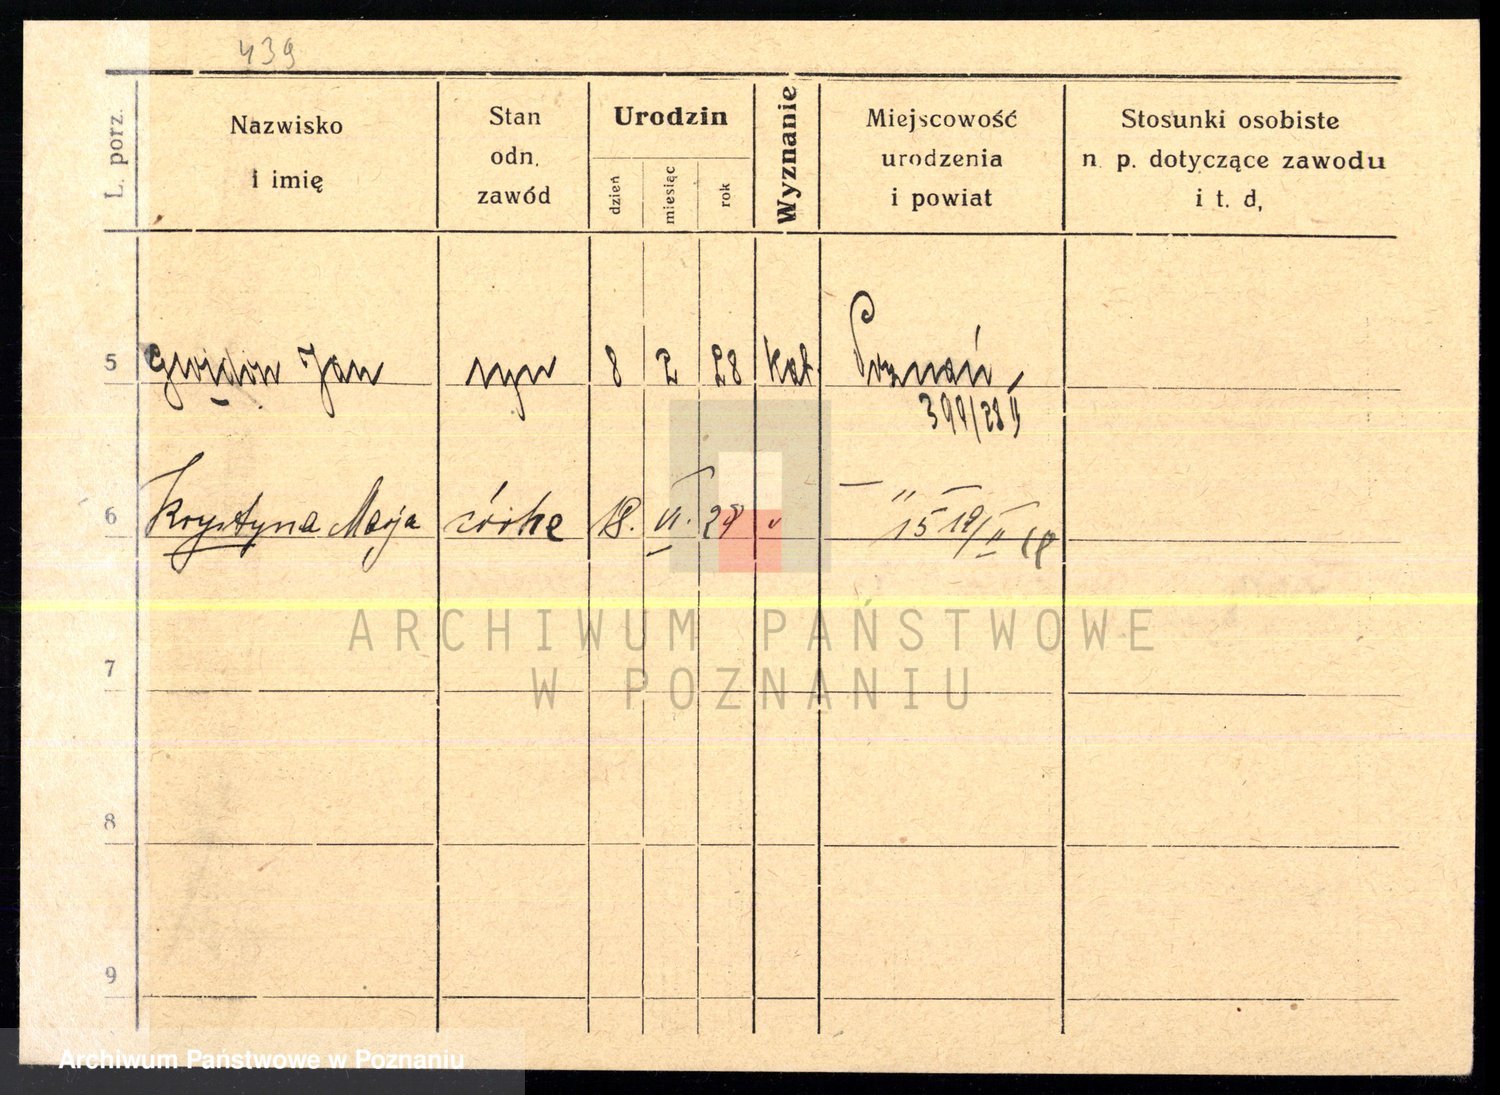 439
L. porz.
Nazwisko
i imię
Stan
odn.
zawód
Urodzin
dzień
miesiąc
rok
Wyznanie
Miejscowość
urodzenia
i powiat
Stosunki osobiste
n. p. dotyczące zawodu
i t. d,
5 Gwidon Jan syn 8 2 28 kat. Poznań
399/28 II
6 Krystyna Marja córka 18. VI. 28 " — " —
7
8
9
ARCHIWUM PAŃSTWOWE
W POZNANIU
Archiwum Państwowe w Poznaniu